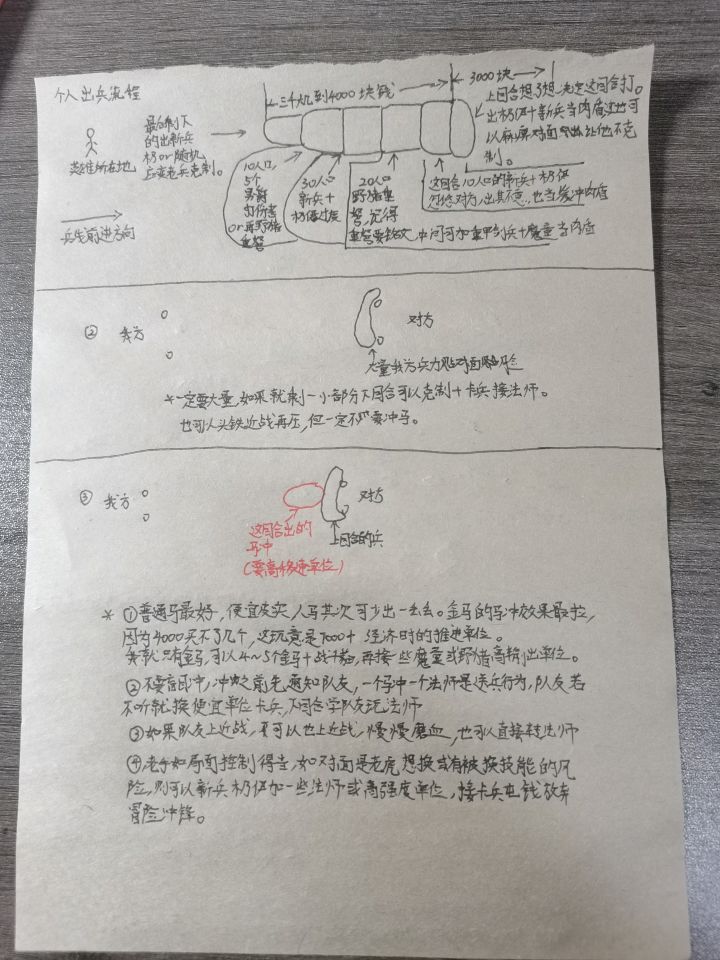 个人出兵流程
三个九到4000块钱
3000块
上回合想了想，决定这回合打。
出扔伍+新兵当肉盾
以麻痹对面
让他不克
制。
最后剩下
的出新兵
英雄所在地
应变老兵克制。
兵线前进方向
10人口，
5个
or
30人口
新兵+
20人口
野猪重
督，记得
中间可加重甲剑兵+魔童当肉盾
这回合10人口的新兵+扔伍
迷惑对方，出其不意，也当缓冲肉盾
② 我方
对方
大量我方兵力贴对面
*一定要大量，如果就剩一小部分下回合可以克制+卡兵接法师。
也可以头铁近战再压，但一定不要冲马。
③ 我方
对方
这回合出的
马冲
(要高移速单位)
上回合的兵
* ①普通马最好，便宜皮实，人马其次可少出一点点。金马的马冲效果最拉，
因为4000买不了几个，这玩意是7000+ 经济时的推进单位。
就只有金马，可以4~5个金马+战
再接一些魔童或野猪高输出单位。
②不要盲目冲，冲之前先通知队友，一个马冲一个法师是送兵行为，队友若
不听就换便宜单位卡兵，下回合学队友玩法师
③如果队友上近战，可以也上近战，慢慢磨血，也可以直接转法师
④老手如局面控制得当，如对面是老虎想换或有被换技能的风
险，则可以新兵
加一些法师或高强度单位，接卡兵
放弃
冒险冲锋。